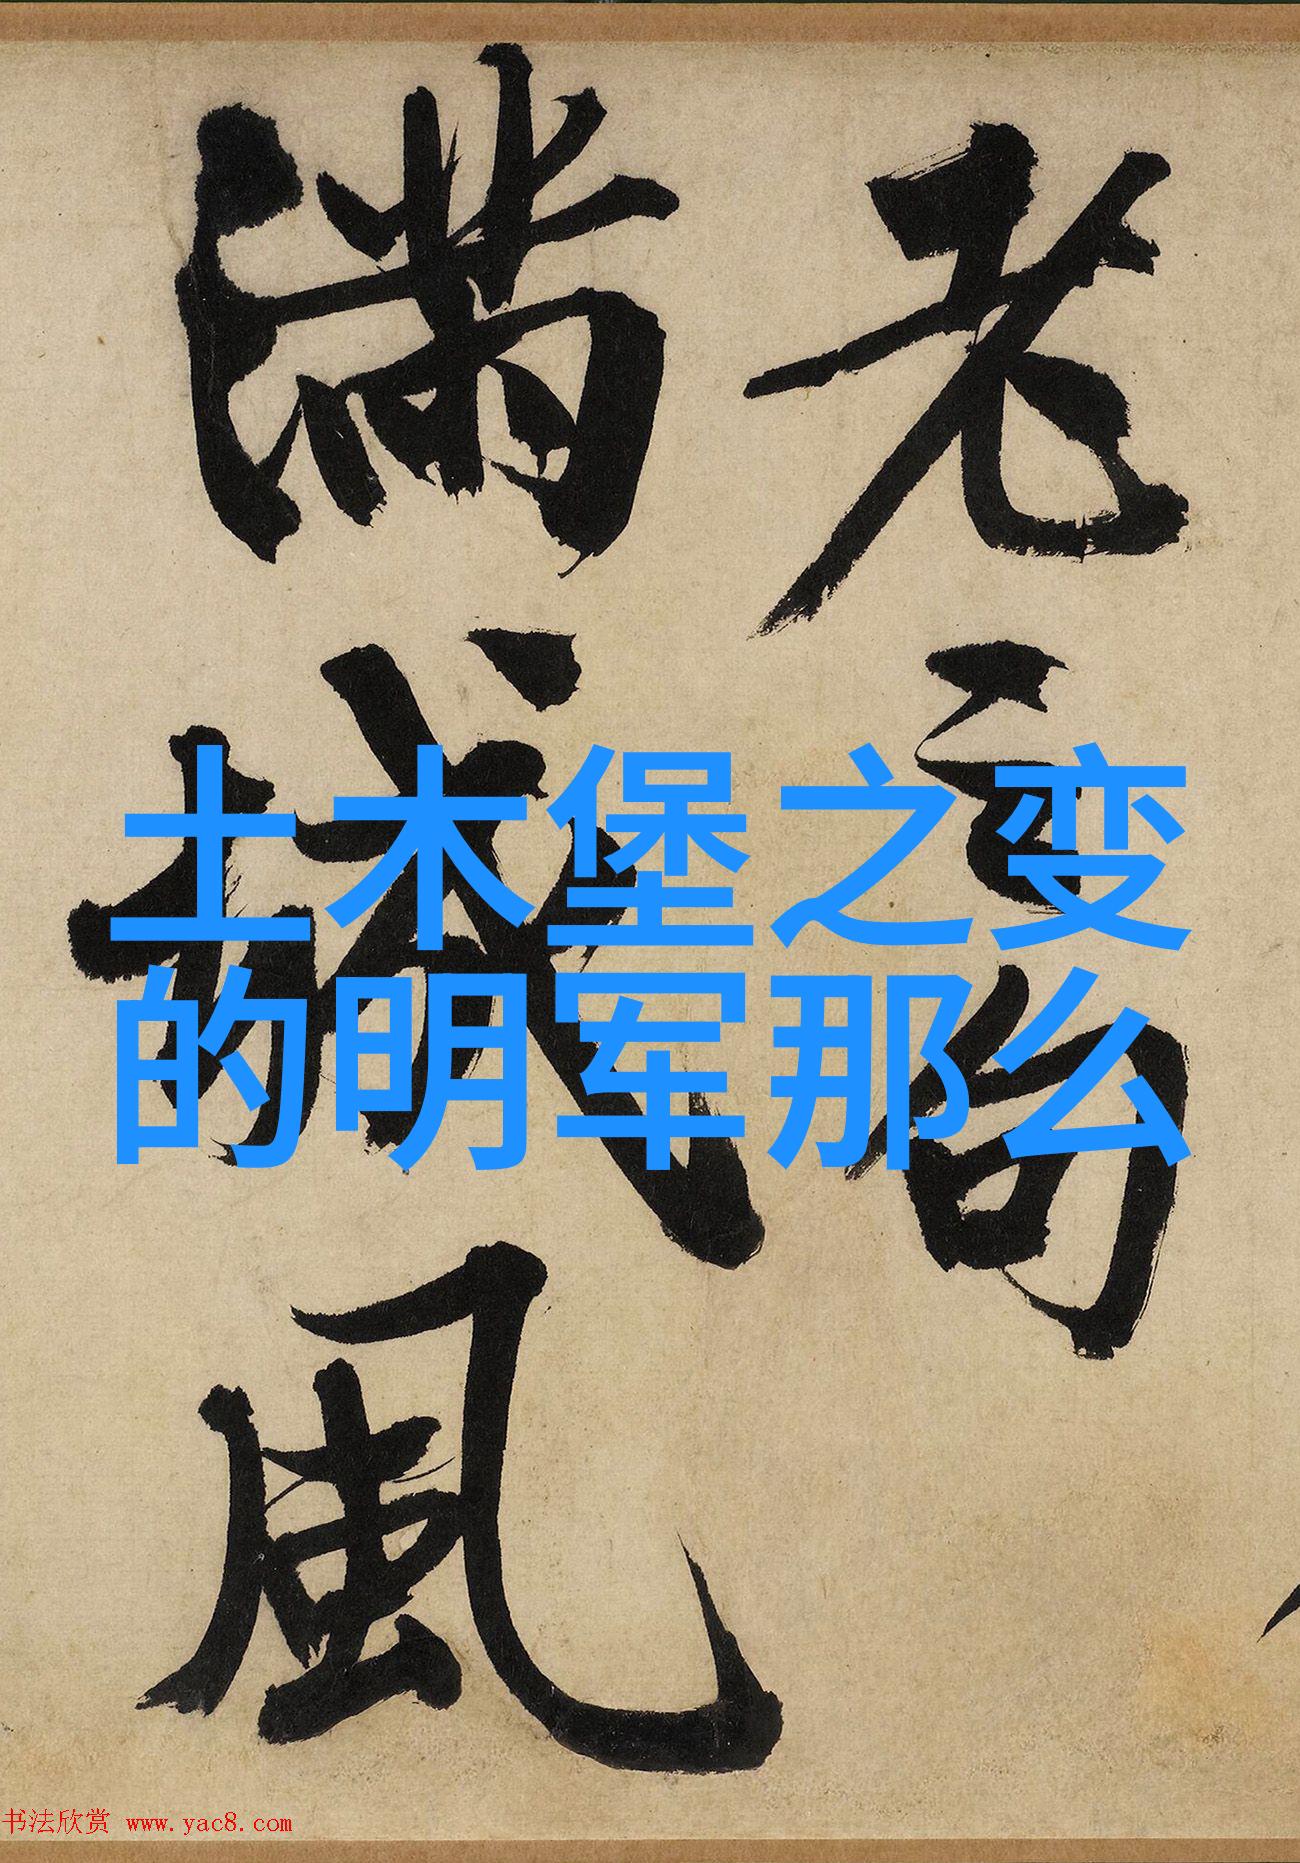 老之句
滿城風
土木堡之变
的明军那么
书法欣赏 www.yac8.com